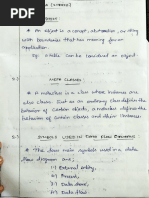 * An object is a concept, abstraction, or thing
with boundaries that has meaning for an
application.
Eg: a table can be considered an object.
2.) META CLASSES
* A metaclass is a class whose instances are
also classes. Just as an ordinary class defines the
behavior of certain objects, a metaclass defines the
behavior of certain classes and their instances.
3.) SYMBOLS USED IN DATA FLOW DIAGRAMS
* The four main symbols used in a data
flow diagram are;
(i) External entity,
(ii) Process,
(iii) Data store,
(iv) Data flow.